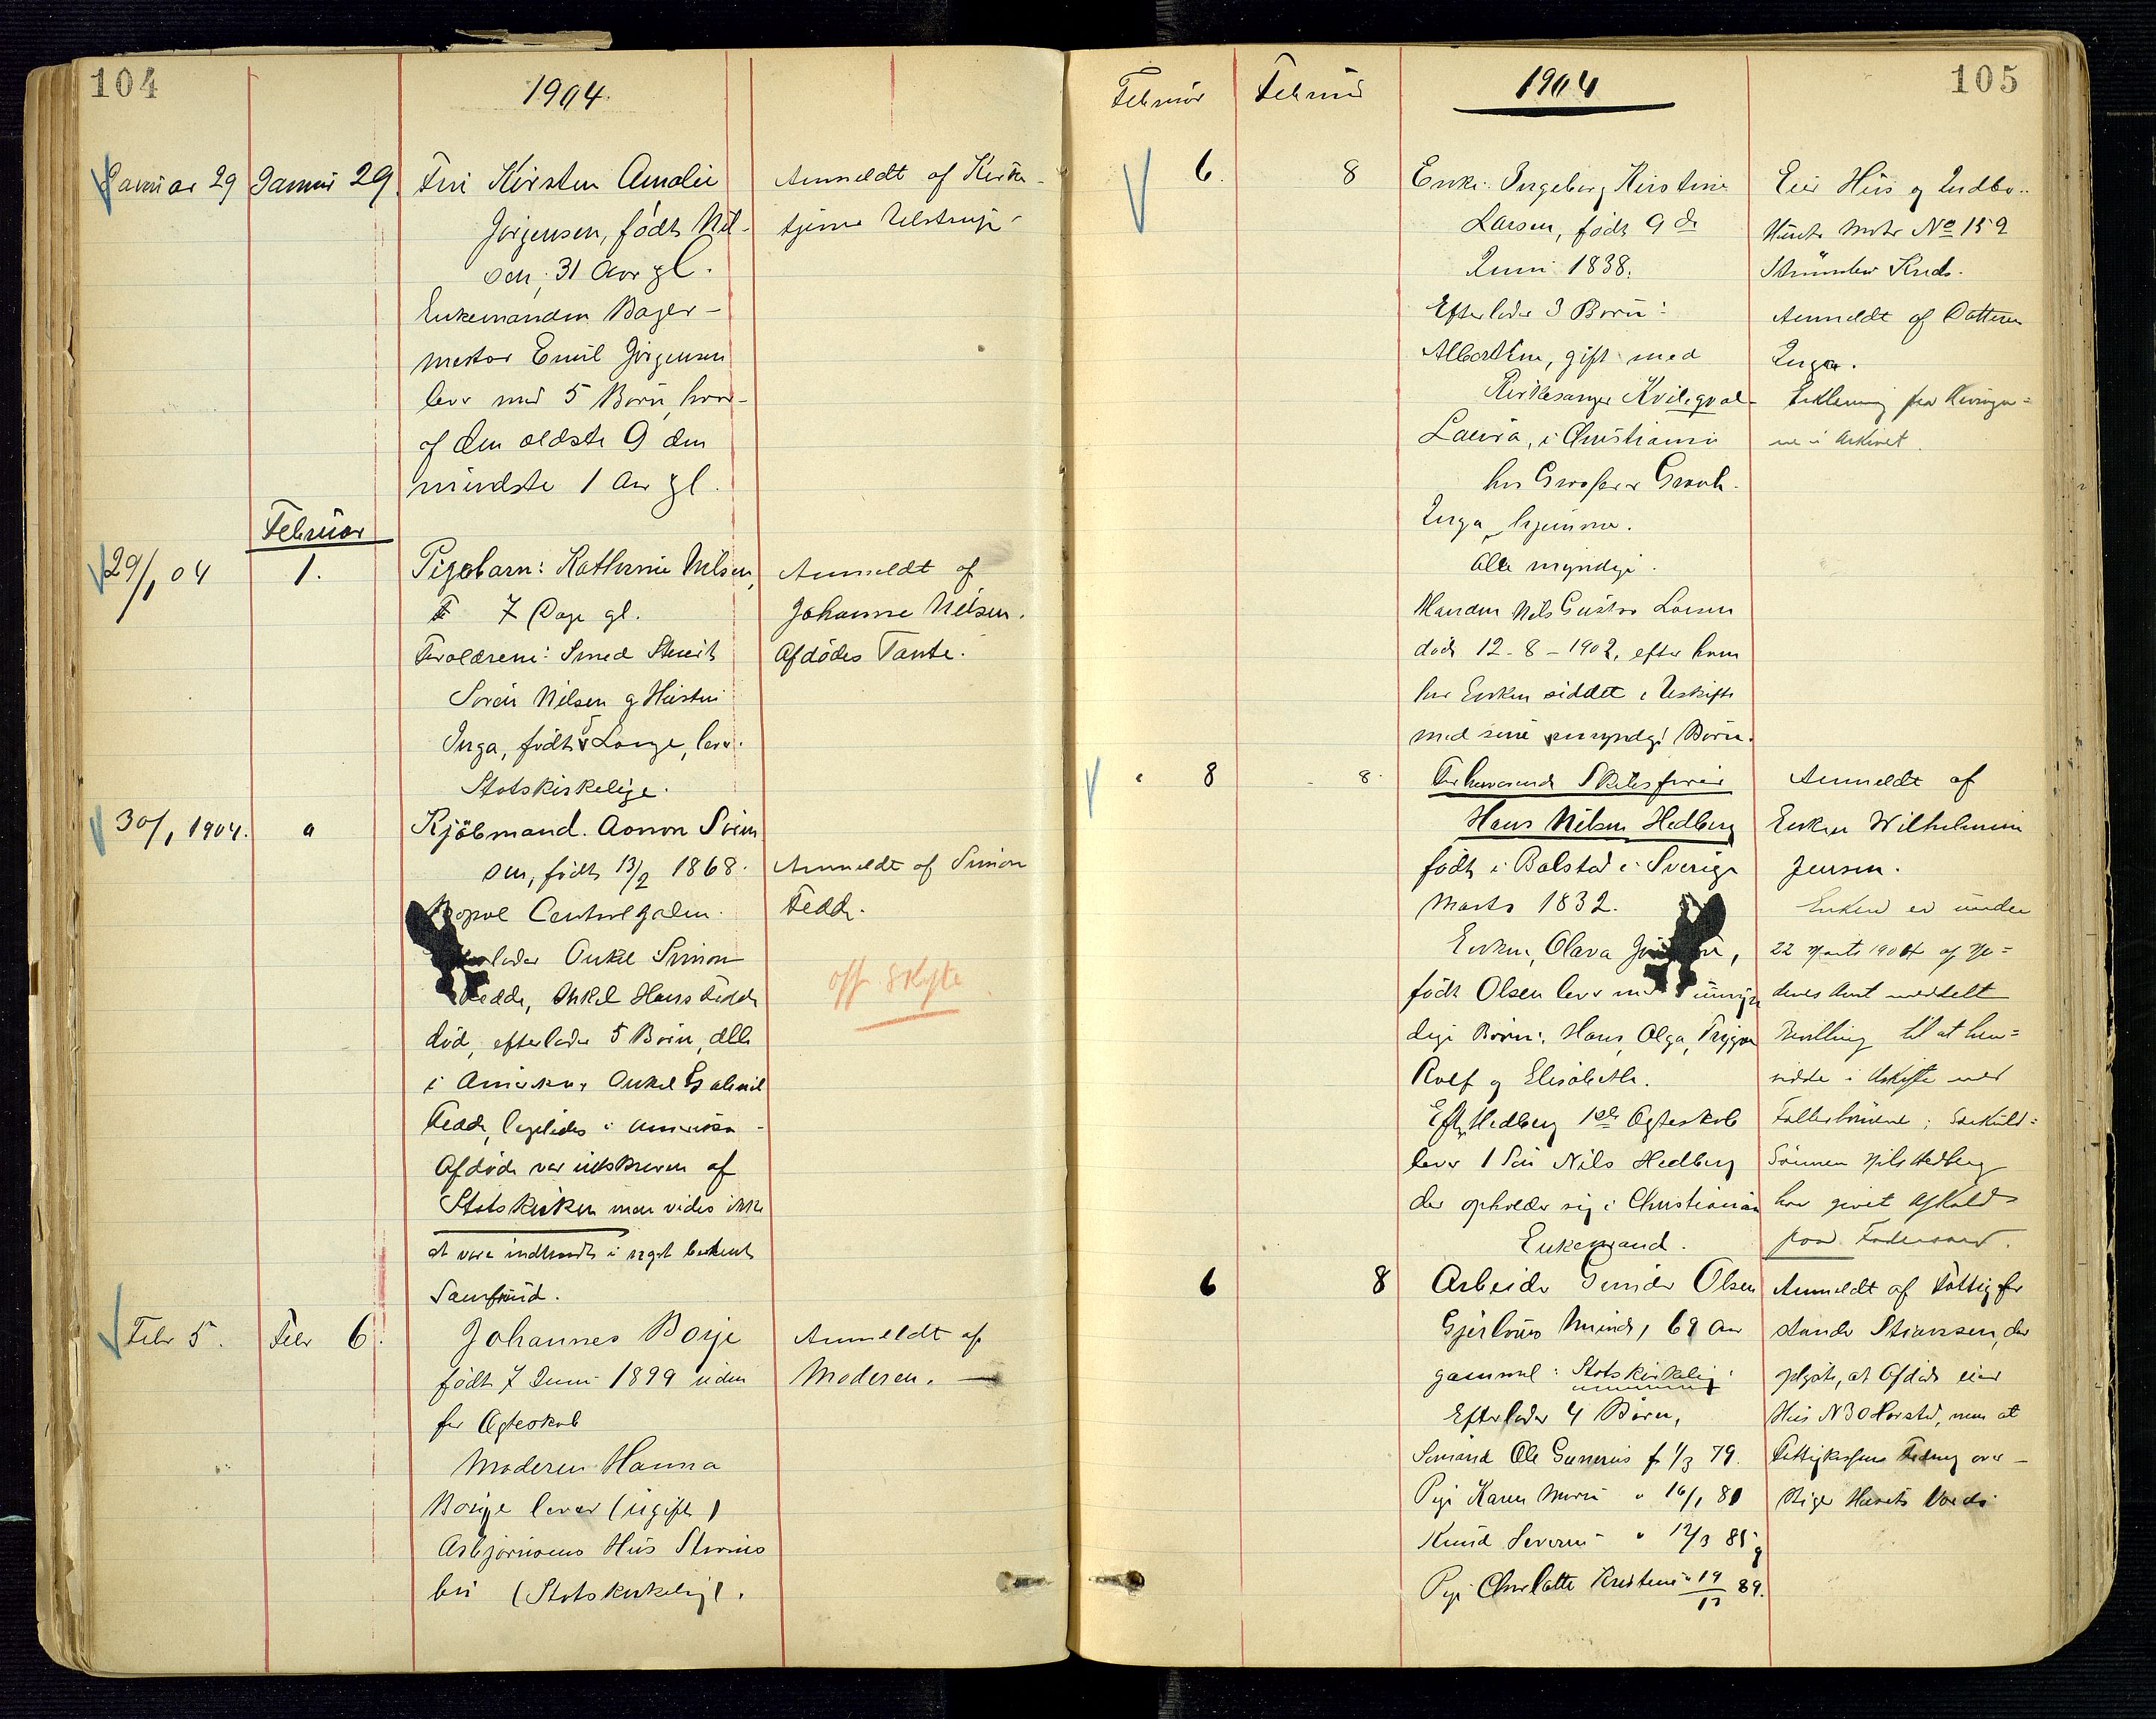 104
1904.
Januar 29
Januar 29.
Fru Kirsten Amalie
Jörgensen, födt Nil-
sen, 31 Aar gl.
Enkemanden Bager-
mester Emil Jörgensen
lever med 5 Börn, hvor-
af den ældste 9 den
mindste 1 Aar gl.
Anmeldt af Kirke-
tjener Ulstrup
Februar
29/1 04
1.
Pigebarn: Kathrine Nilsen,
7 Dage gl.
Forældrene: Smed Steert
Sören Nilsen og Hustru
Inga, födt Lange, lever.
Statskirkelige.
Anmeldt af
Johanne Nilsen.
Afdödes Tante.
30/1 1904.
"
Kjöbmand Aanon Sven
sen, födt 13/2 1868.
Bopæl Centralgaden.
Efterlader Onkel Simon
Fedde, Onkel Hans Fedde
död, efterlader 5 Börn, alle
i Amerika, Onkel Gabriel
Fedde, ligeledes i Amerika.
Afdöde var udskreven af
Statskirken men vides ikke
at være indtraadt i noget bekjent
Samfund.
Anmeldt af Simon
Fedde.
off. Skifte
Febr 5.
Febr 6.
Johannes Borje
födt 7 Juni 1899 uden
for Ægteskab
Moderen Hanna
Borge lever (ugift)
Asbjörnsens Hus Strøms
bu (Statskirkelig).
Anmeldt af
Moderen.
105
Februar
Februar
1904
6.
8
Enke: Ingeborg Kirstine
Larsen, födt 9de
Juni 1838.
Efterlader 3 Börn:
Albertine, gift med
Kirkesanger Kvilegval
Laura, i Christiania
hos Grosserer
Inga hjemme.
Alle myndige.
Manden Nils Gustav Larsen
döde 12-8-1902, efter ham
har Enken siddet i Uskifte
med sine myndige Börn.
Eier Hus og Indbo.
Matr No 159
Anmeldt af Datteren
Inga.
Erklæring fra
i Arkivet.
8
8.
Forhenværende Skibsförer
Hans Nilsen Hedberg
födt i Balstad i Sverige
Marts 1832.
Enken, Olava
födt Olsen lever med umyn
dige Börn: Hans, Olga, Trygve
Rolf og Elisabeth.
Efter Hedberg 1ste Ægteskab
lever 1 Sön Nils Hedberg
der opholder sig i Christiania
Enkemand.
Anmeldt af
Enken Wilhelmine
Jensen.
Enken er under
22 Marts 1904 af Ne-
denes Amt meddelt
Bevilling til at hen-
sidde i Uskifte med
Fællesbörnene; Særkuld-
Sönnen Nils Hedberg
har givet Afkald
paa Fædrenearv.
6
8
Arbeider Gunder Olsen
Gjerlöus Minde, 69 Aar
gammel: Statskirkelig.
Efterlader 4 Börn,
Sömand Ole Gunerius f 1/3 79.
Pige Karen Marie " 16/1 81
Knud Severin " 12/3 85 g
Pige Charlotte Kristine " 19/12 89.
Anmeldt af Fattigfor
stander Stiansen, der
oplyste, at Afdöde eier
Hus N 30 Harstad, men at
Fattigkassens Fordring over-
stiger Husets Værdi